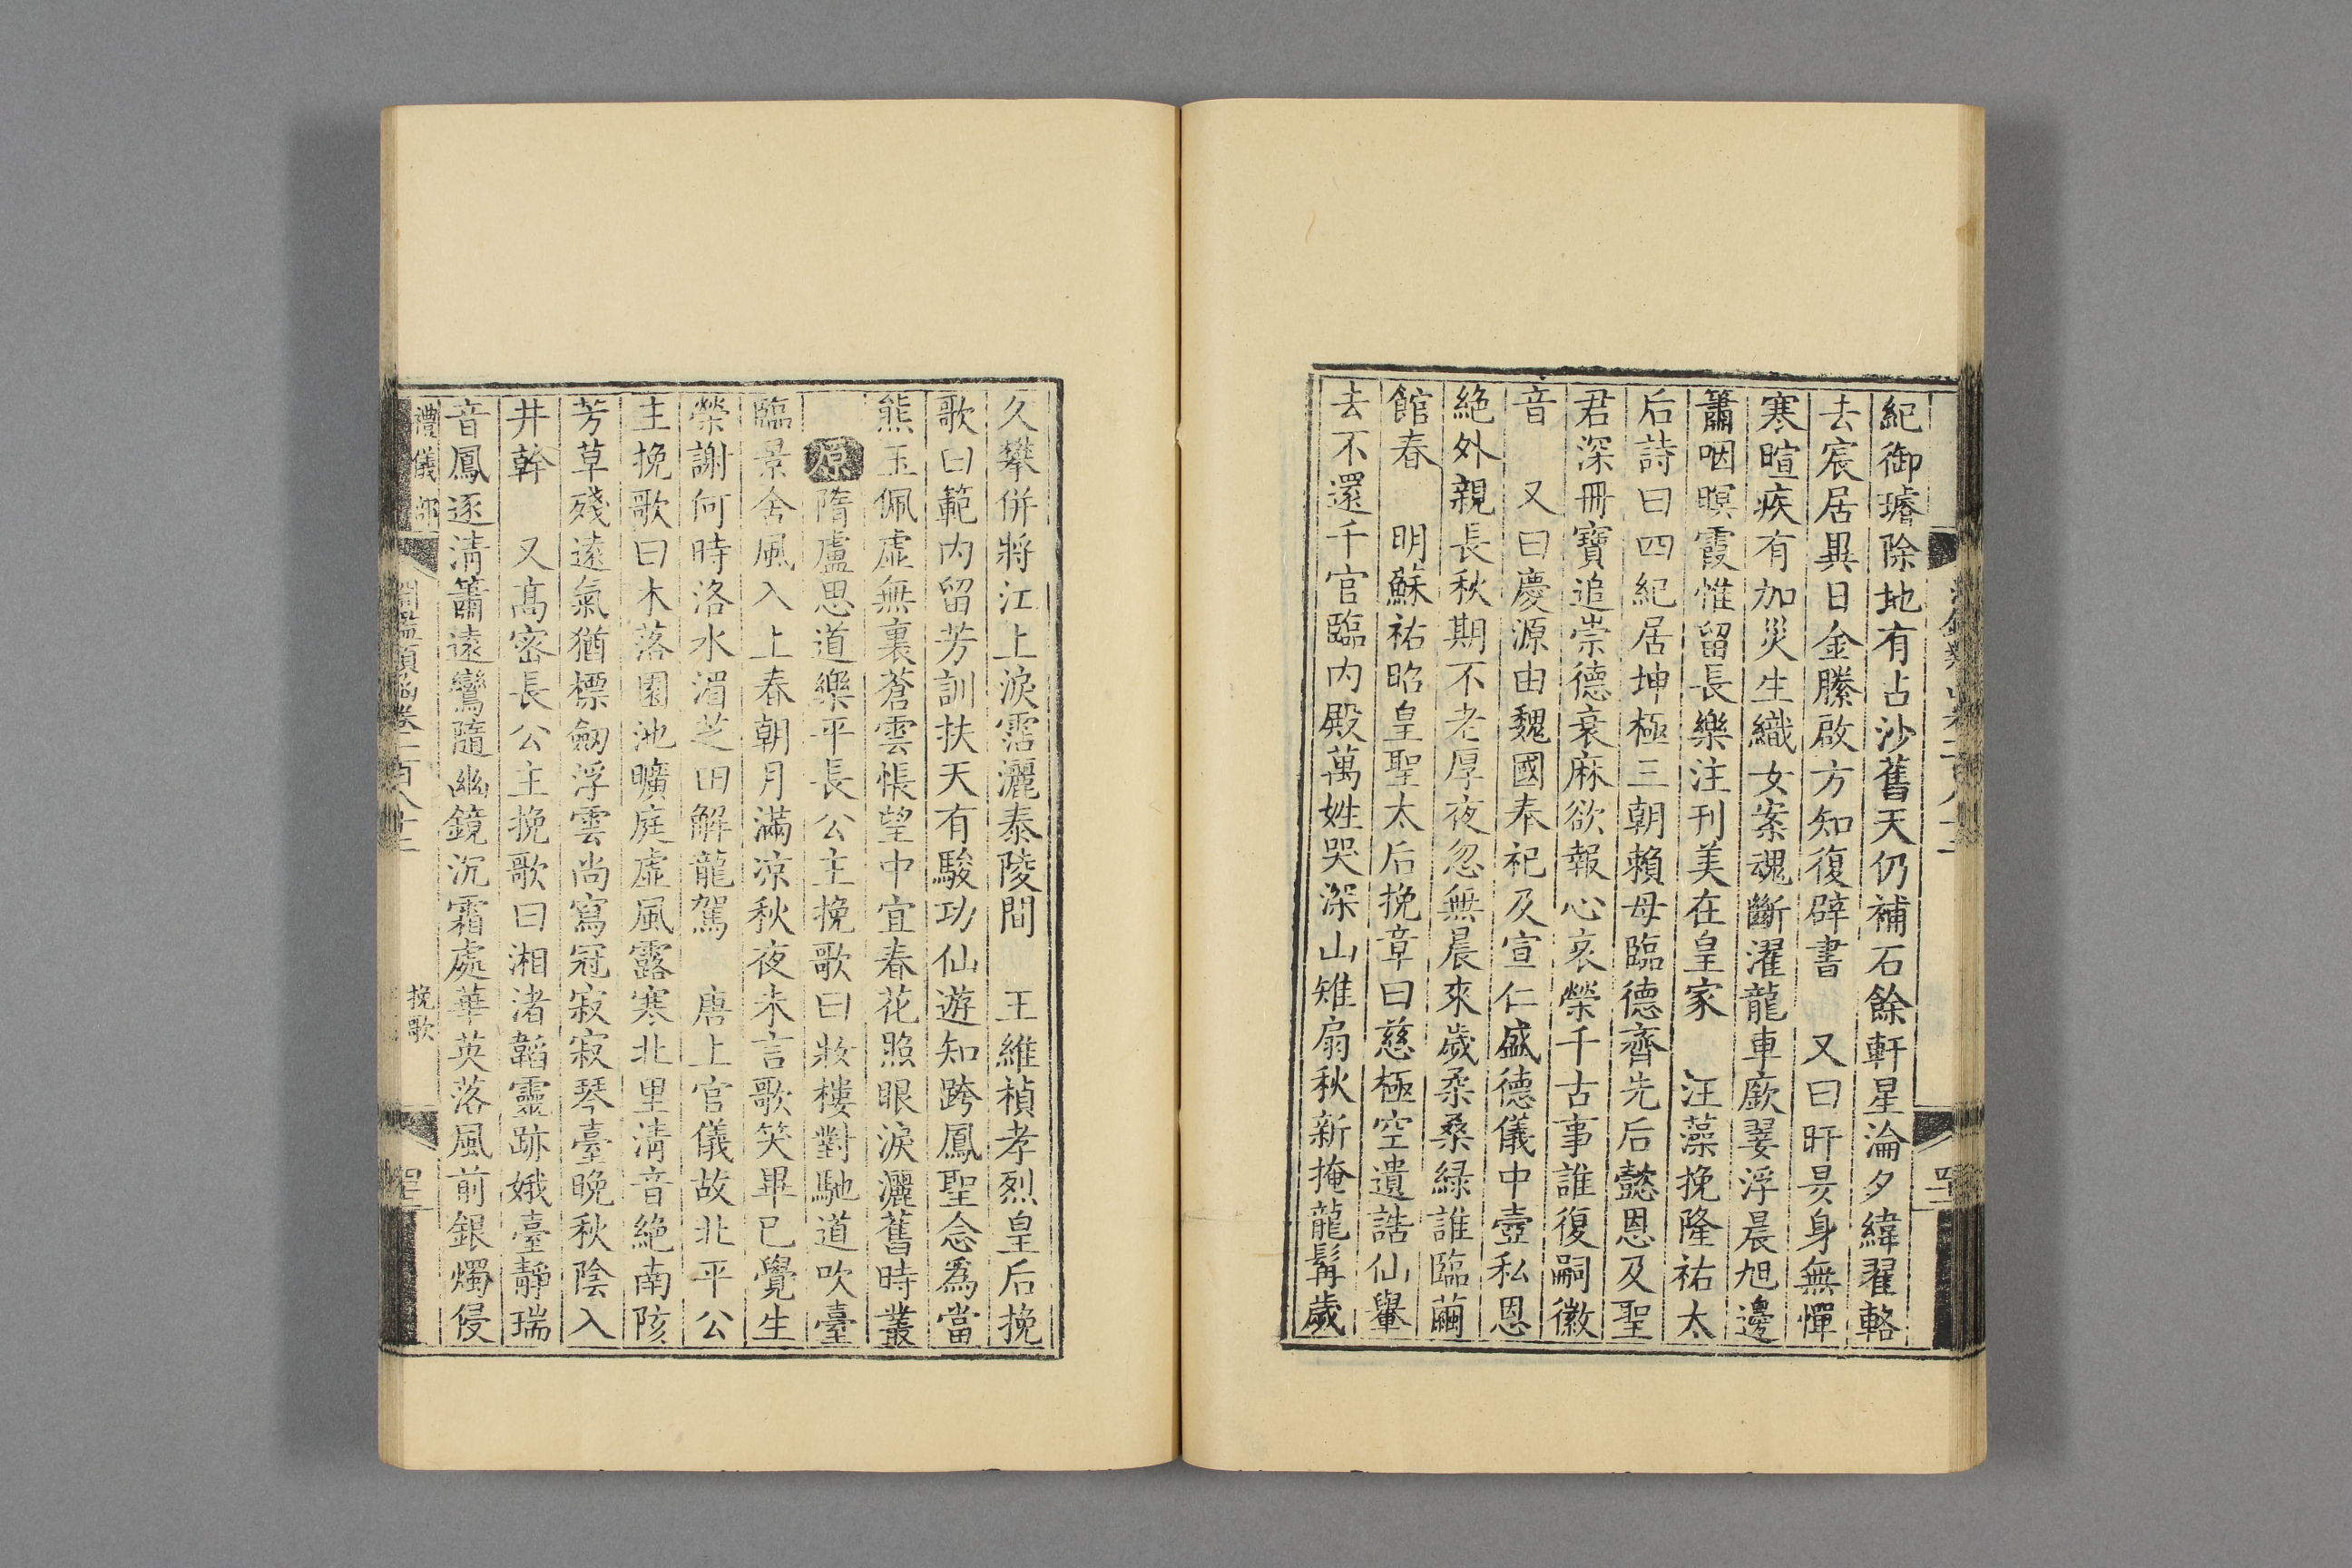 紀御璿除地有占沙舊天仍補石餘軒星淪夕緯翟輅
去宸居異日金縢啟方知復辟書　又曰旰昃身無憚
寒暄疾有加災生織女案魂斷濯龍車廞翣浮晨旭邊
簫咽暝霞惟留長樂注刊美在皇家　汪藻挽隆祐太
后詩曰四紀居坤極三朝賴母臨德齊先后懿恩及聖
君深冊寶追崇德衰麻欲報心哀榮千古事誰復嗣徽
音　又曰慶源由魏國奉祀及宣仁盛德儀中壼私恩
絶外親長秋期不老厚夜忽無晨來歲柔桑緑誰臨繭
館春　明蘇祐昭皇聖太后挽章曰慈極空遺誥仙轝
去不還千官臨内殿萬姓哭深山雉扇秋新掩龍髯歲
久攀併將江上淚霑灑泰陵間　王維楨孝烈皇后挽
歌曰範内留芳訓扶天有駿功仙遊知跨鳳聖念爲當
熊玉佩虛無裏蒼雲悵望中宜春花照眼淚灑舊時叢
原隋盧思道樂平長公主挽歌曰妝樓對馳道吹臺
臨景舍風入上春朝月滿凉秋夜未言歌笑畢已覺生
榮謝何時洛水湄芝田解龍駕　唐上官儀故北平公
主挽歌曰木落園池曠庭虛風露寒北里清音絶南陔
芳草殘遠氣猶標劒浮雲尚寫冠寂寂琴臺晚秋陰入
井幹　又高密長公主挽歌曰湘渚韜靈跡娥臺靜瑞
音鳳逐清簫遠鸞隨幽鏡沉霜處華英落風前銀燭侵
禮儀部
淵鑑類函卷一百八十二　挽歌